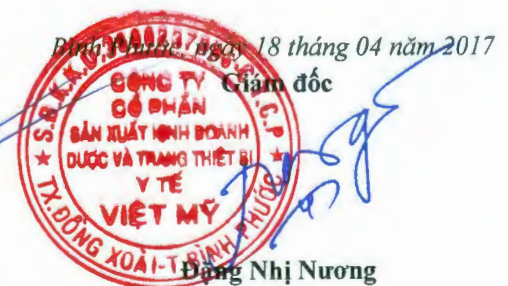 Bình Phước, ngày 18 tháng 04 năm 2017
Giám đốc
CÔNG TY
CỔ PHẦN
SẢN XUẤT KINH DOANH
DƯỢC VÀ TRANG THIẾT BỊ
Y TẾ
VIỆT MỸ
TX.ĐỒNG XOÀI-T.BÌNH PHƯỚC
Đặng Nhị Nương